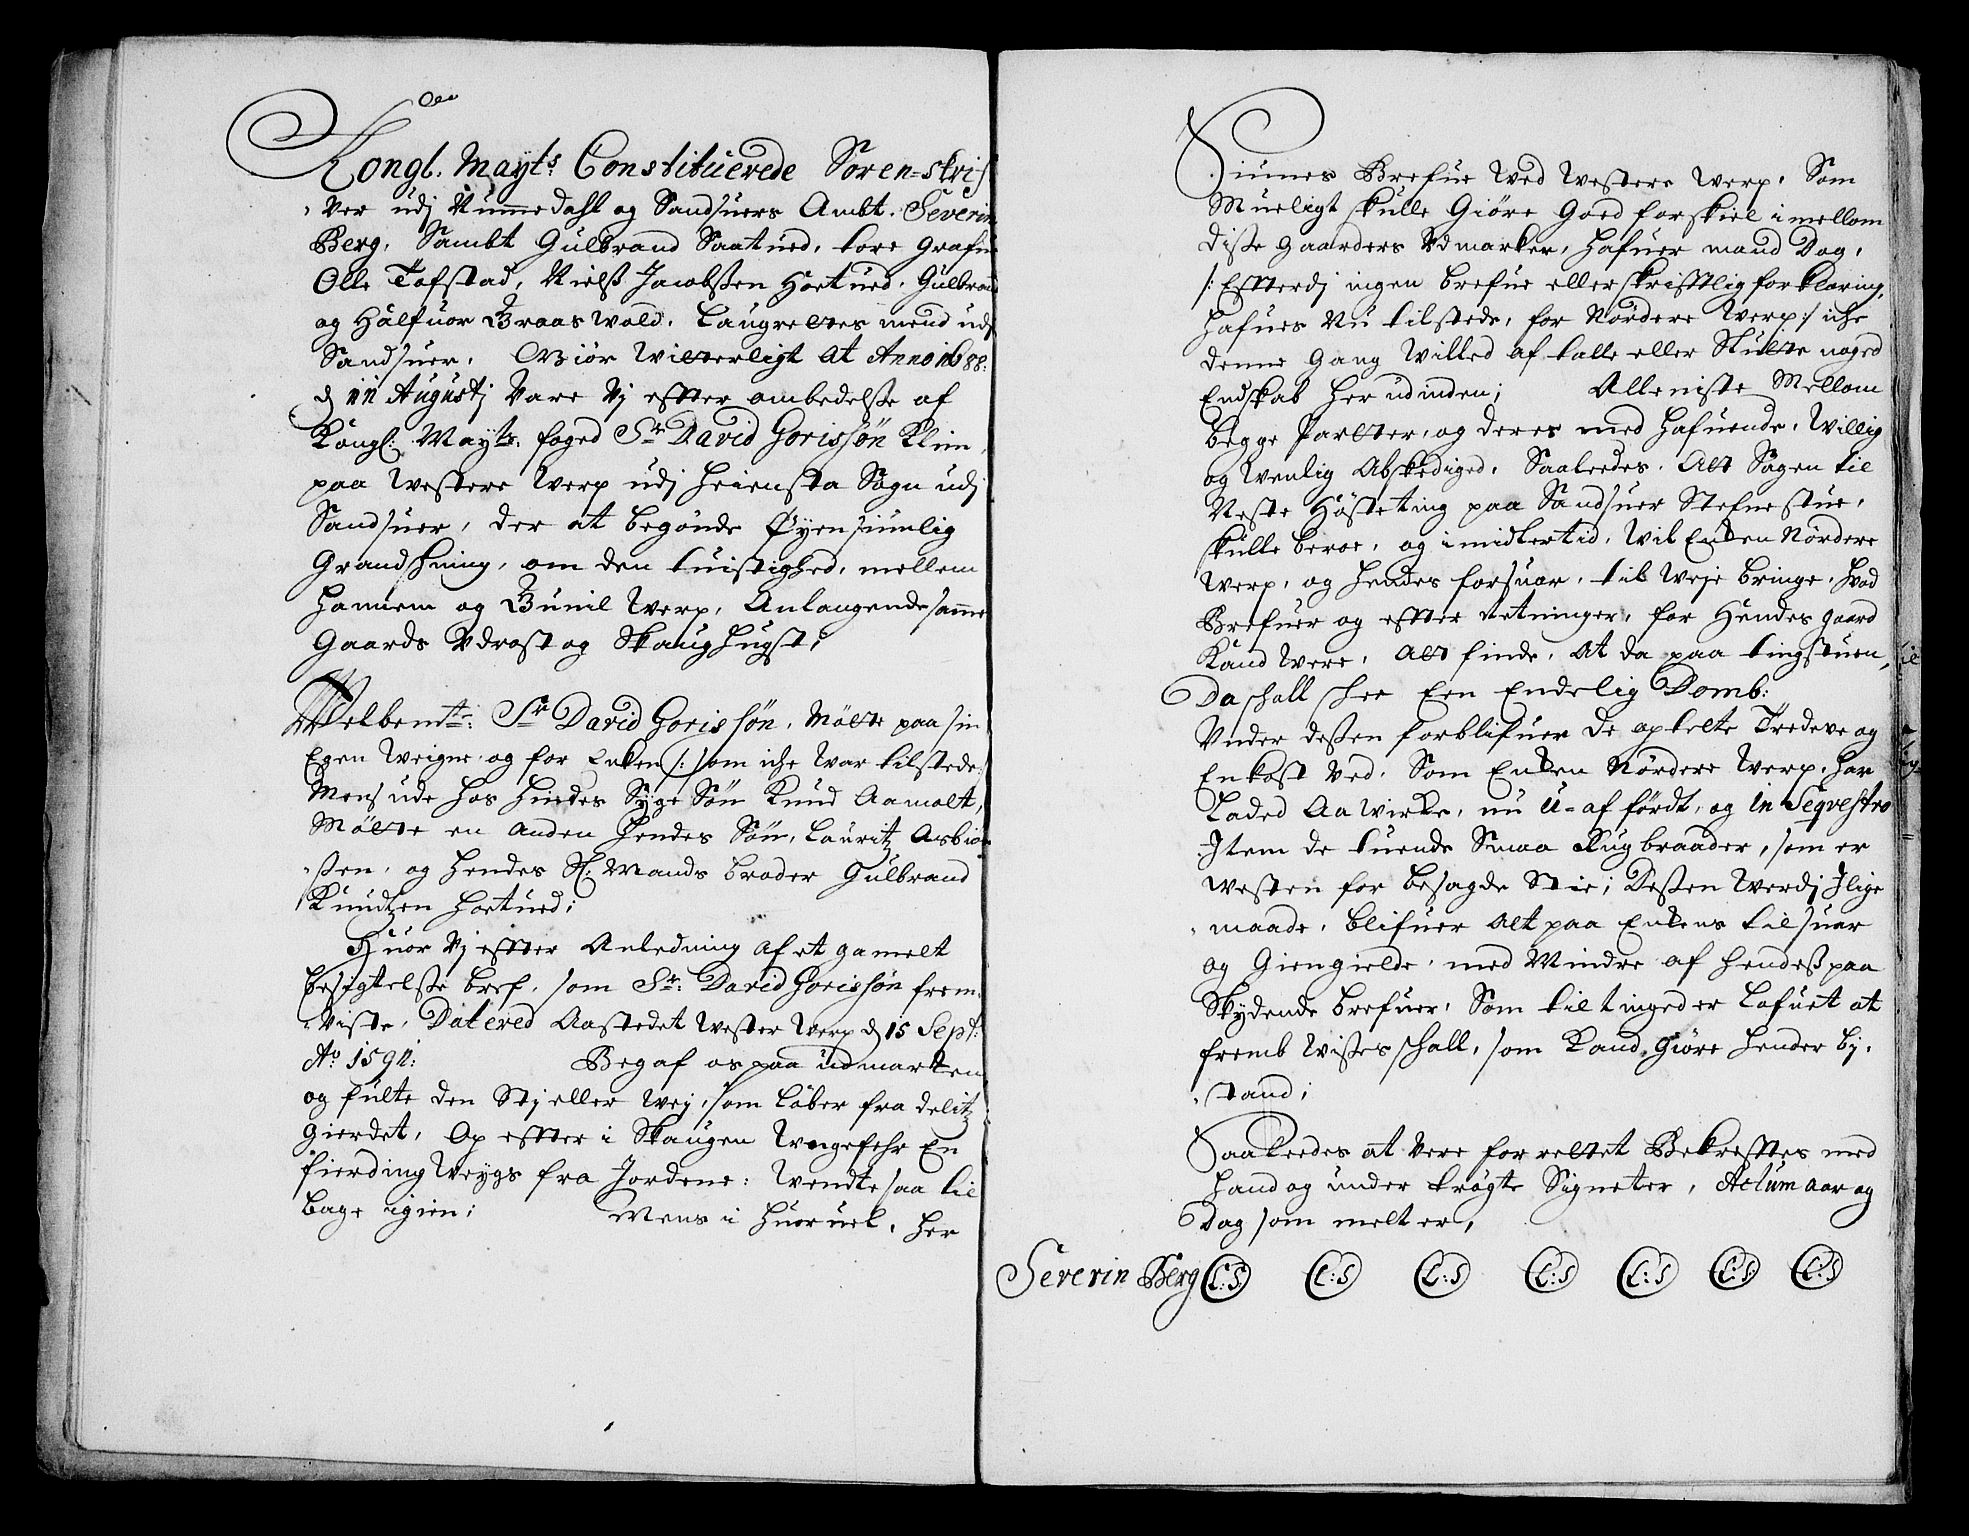 Kongl. Mayts Constituerede Soren-skrif
Ver udj Nummedahl og Sandsuers Ambt. Severin
Berg, Sambt Gulbrand Saatued, tore grafu
Olle Tofstad, Nielß Jacobßen Hoetued, Gulbrand
og Halfuor Braaswold. Laugrettes mend udj
Sandsuer, Giør Witterligt at Anno 1688:
d 11 Augustj Vare Vj effter ombedelße af
Kongl: Mayts foged Sr David Gorissøn Klim,
paa Westere Werp udj heiensta Sogn udj
Sandsuer, der at begønde Øyensiunlig
Grandskning, om den tuistighed, mellem
hannem og Bunil Werp, Anlangende samme
Gaards Vdrast og Skaughugst;
Welbemt: Sr David Gorissøn, Møtte paa sin
Egen Weigne og for Enken /: som iche war tilstede:/
Mens ude hos hindes Syge Søn Knud Aamolt,
Møtte en anden hendes Søn, Lauritz Asbiør
ßen, og hendes Sl. Mands broder Gulbrand
Knudtzen hoetued;
Huor Vj effter Anledning af et gamelt
besigtelße bref, som Sr: David Gorissøn frem
Viste, Datered Aastedet Wester Werp d 15 Sept:
Ao 1591: Begaf os paa udmarken
og fulte den Stj eller Wej, som løber fra
gierdet, Op effter i Skaugen Wngefehr En
fierding Weygs fra Jordene: Wendte saa til
bage igien; Mens i huoruel, her
Siunes Brefue Wed Westere Werp, Som
Mueligt skulle Giøre Goed forskiel imellom
diße gaarders Vdmarker, hafuer mand dog,
/: Effterdj ingen brefue eller skrifftlig forklaring,
hafues Nu tilstede, for Nørdere Werp :/ iche
denne gang Willed af talle eller Slutte noged
Endskab herudinden; Alleniste Mellom
begge Partter, og deres med hafuende, Willig
og Wenlig Abskediged, Saaleedes, Att Sagen til
Neste Høsteting paa Sandsuer Stefnestue,
skulle beroe, og imidlertid, Wil Enken Nørdere
Werp, og hendes forsuar, til Weje bringe, hvad
Brefuer og effter retninger, for Hendes gaard
Kand Were, Att finde, At da paa tingstuen,
Da schall schee Een Endelig Domb:
Vnder deßen forblifuer de optelte Tredeve og
En kast Ved, Som Enken Nørdere Werp, har
Laded Aawirke, nu u-afførdt, og in Seqvestro
Item de tuende Smaa Rugbraader, som er
westen for besagde Stie; Deßen Werdj Jlige
maade, blifuer alt paa Enkens tilsuar
og Giengielde, med Mindre af hendeß paa
Skydende brefuer, Som til tinged er lofuet at
fremb Wißes schall, som Kand giøre hender bj,
stand;
Saaleedes at Vere forrettet Bekreffttes med
hand og under trøgte Signeter, Actum aar og
Dag som melt er,
Severin Berg L:S L:S L:S L:S L:S L:S L:S